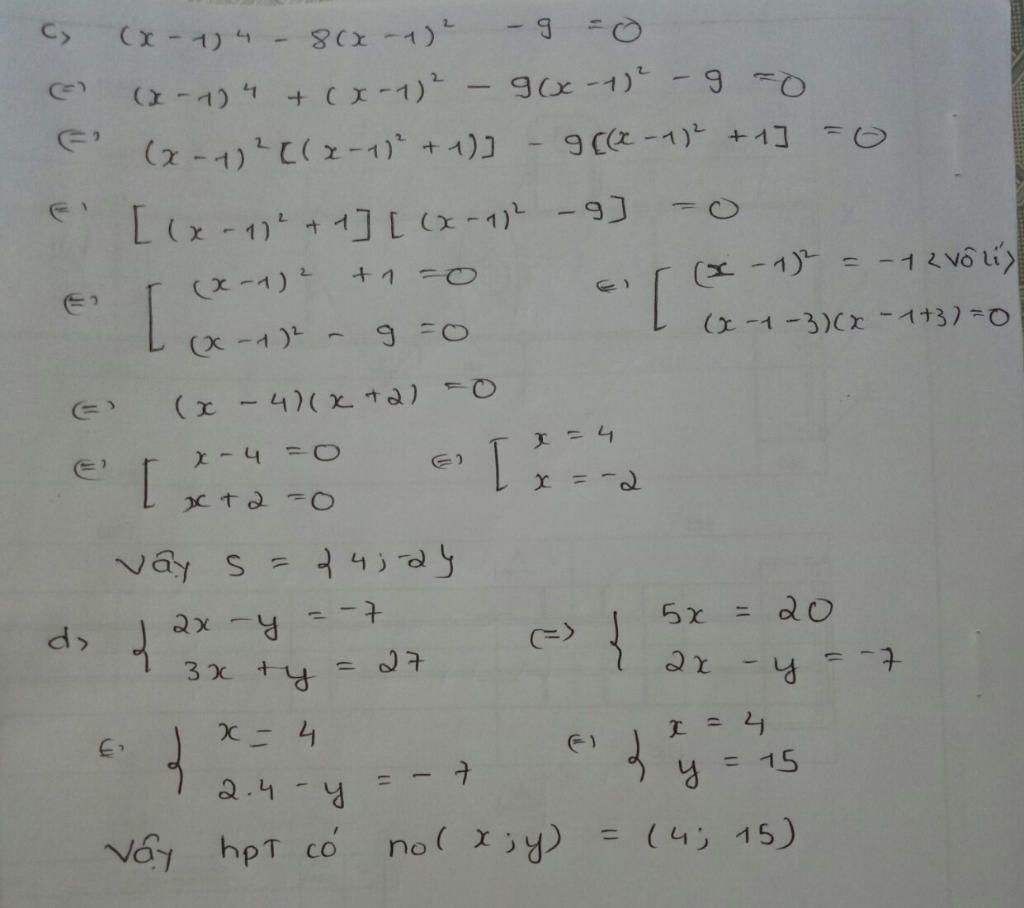 c, (x-1)⁴ - 8(x-1)² - 9 = 0
(=) (x-1)⁴ + (x-1)² - 9(x-1)² - 9 = 0
(=) (x-1)²[(x-1)² + 1)] - 9[(x-1)² + 1] = 0
(=) [(x-1)² + 1][(x-1)² - 9] = 0
(=) [ (x-1)² + 1 = 0 (=) [ (x-1)² = -1 <vô lí>
(x-1)² - 9 = 0 (x-1-3)(x-1+3) = 0
(=) (x-4)(x+2) = 0
(=) [ x-4 = 0 (=) [ x = 4
x+2 = 0 x = -2
Vậy S = {4; -2}
d, { 2x - y = -7 (=) { 5x = 20
3x + y = 27 2x - y = -7
(=) { x = 4 (=) { x = 4
2.4 - y = -7 y = 15
Vậy hpT có no(x;y) = (4; 15)